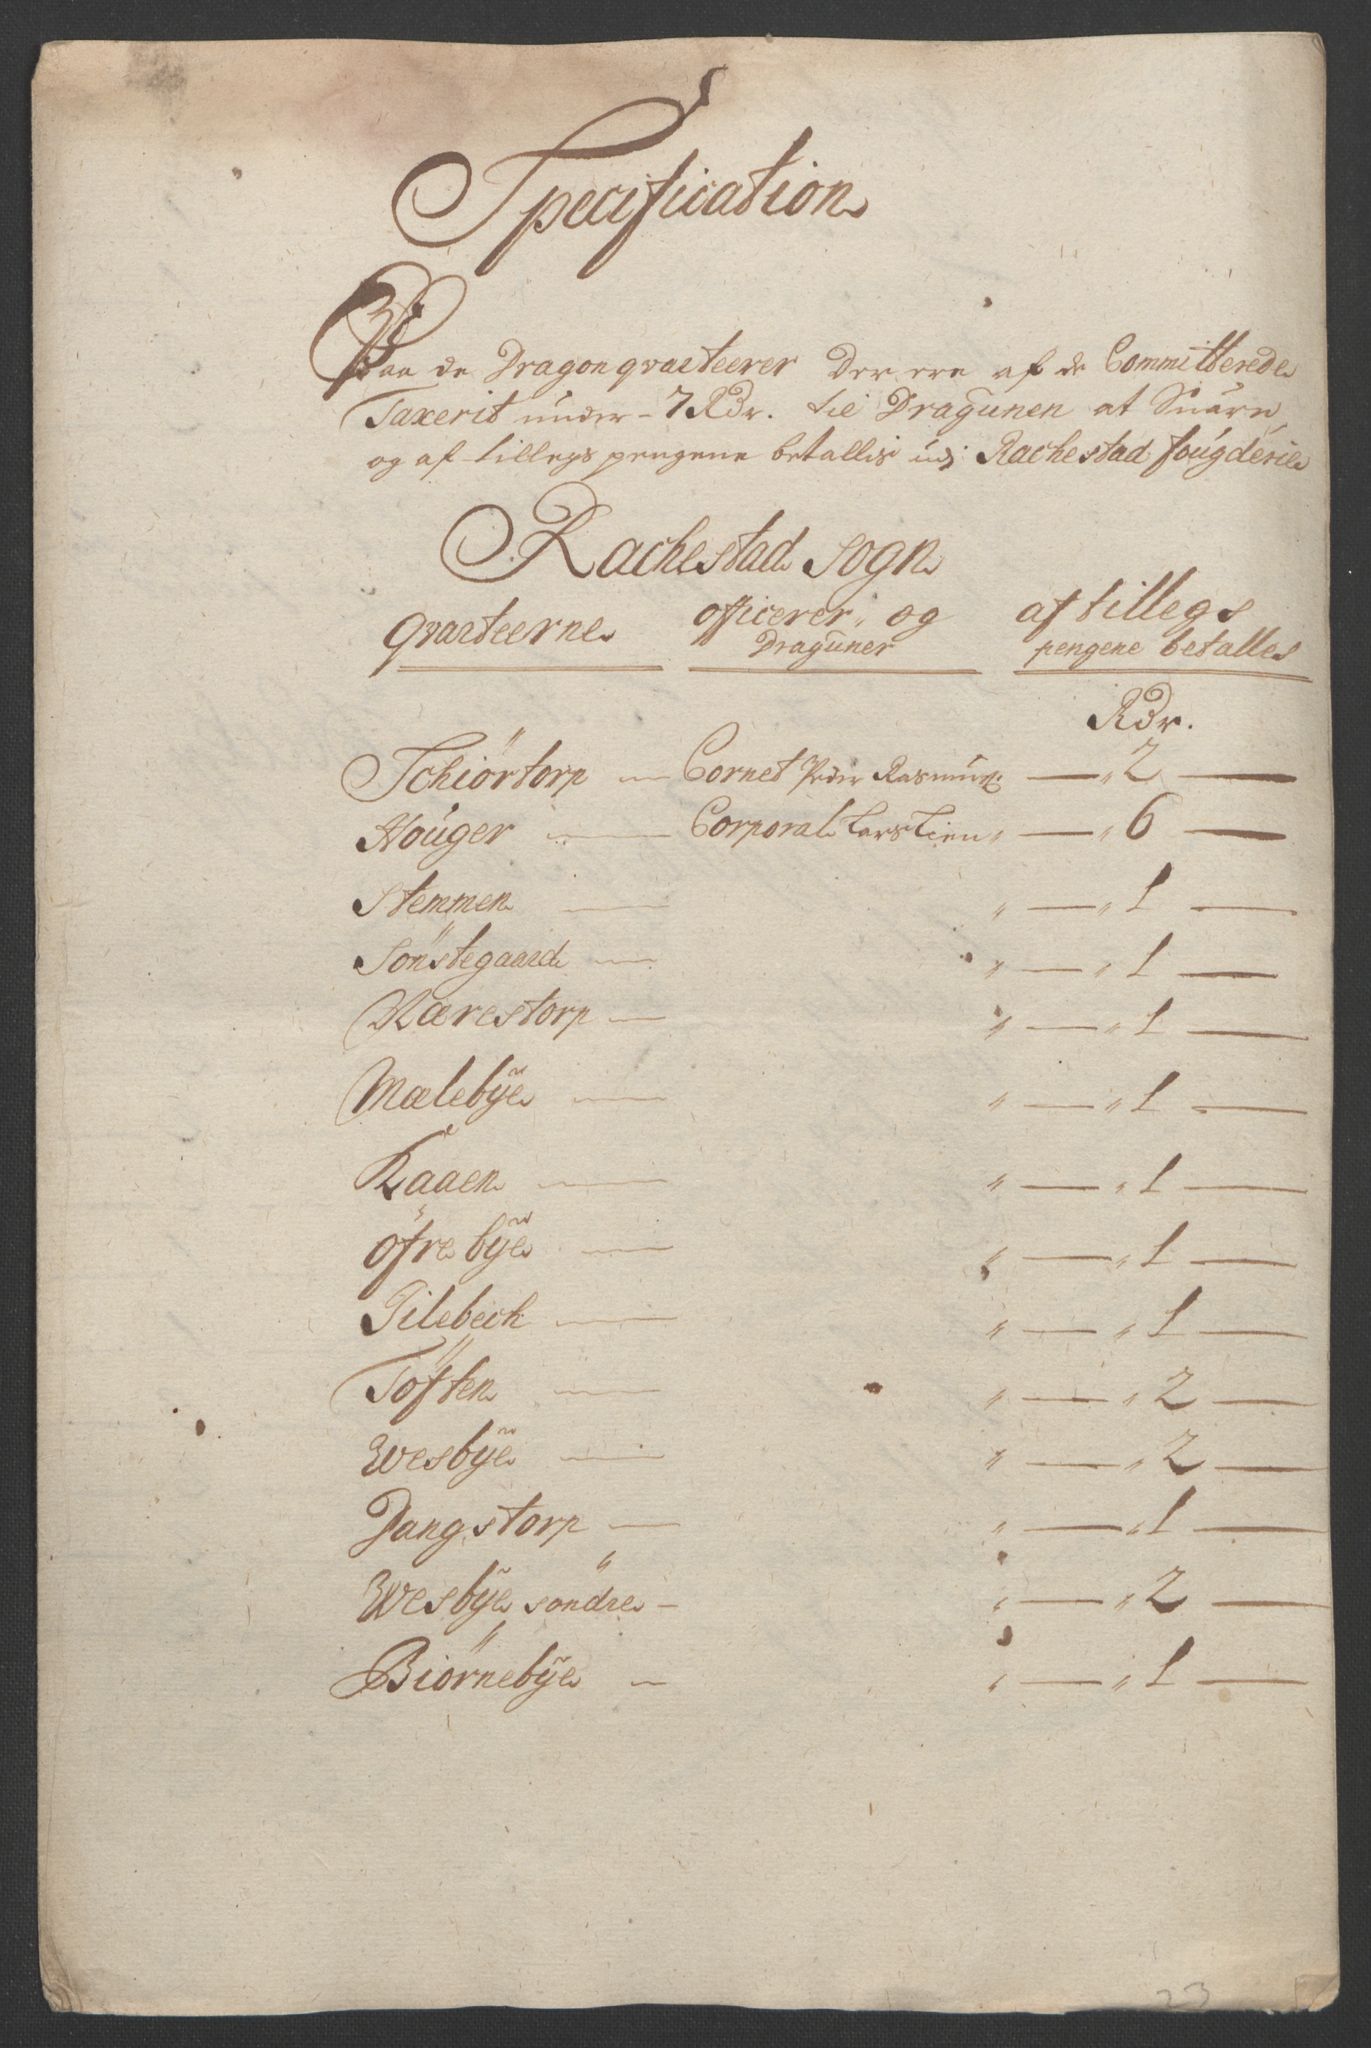 Specification
Paa de Dragonqvarteerer der ere af de Committerede
Taxerit under 7 Rdr. til Dragunen at Svare,
og af tillegs pengene betallis udj Rachestad fougderie
Rachestad Sogn
qvarteerne officerer og af tillegs
Draguner pengene betalles
Rdr.
Schiörtorp Cornet Peder Rasmus: 2
Houger Corporal Carstien 6
Stemmen 1
Sönstegaard 1
Kærestorp 1
Mælebÿe 1
Kaaen 1
öfrebÿe 1
Gilebeck 1
Töften 2
Wesbÿe 2
Dangstorp 1
Wesbÿe söndre 2
Biörnebÿe 1
23